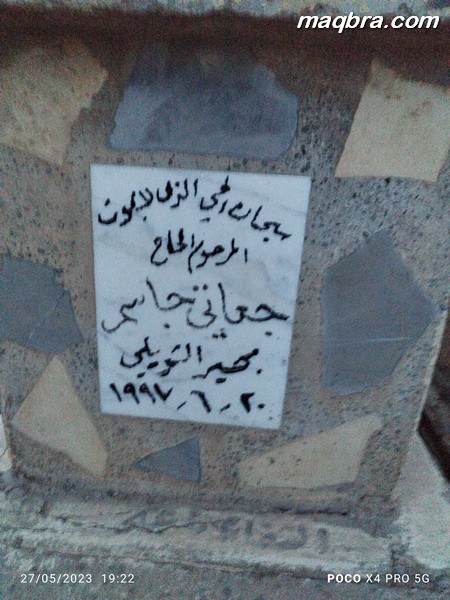 maqbra.com
سبحان الحي الذي لا يموت
المرحوم الحاج
جعاتي جاسم
مجير التويلي
٢٠-٦-١٩٩٧
27/05/2023 19:22
POCO X4 PRO 5G